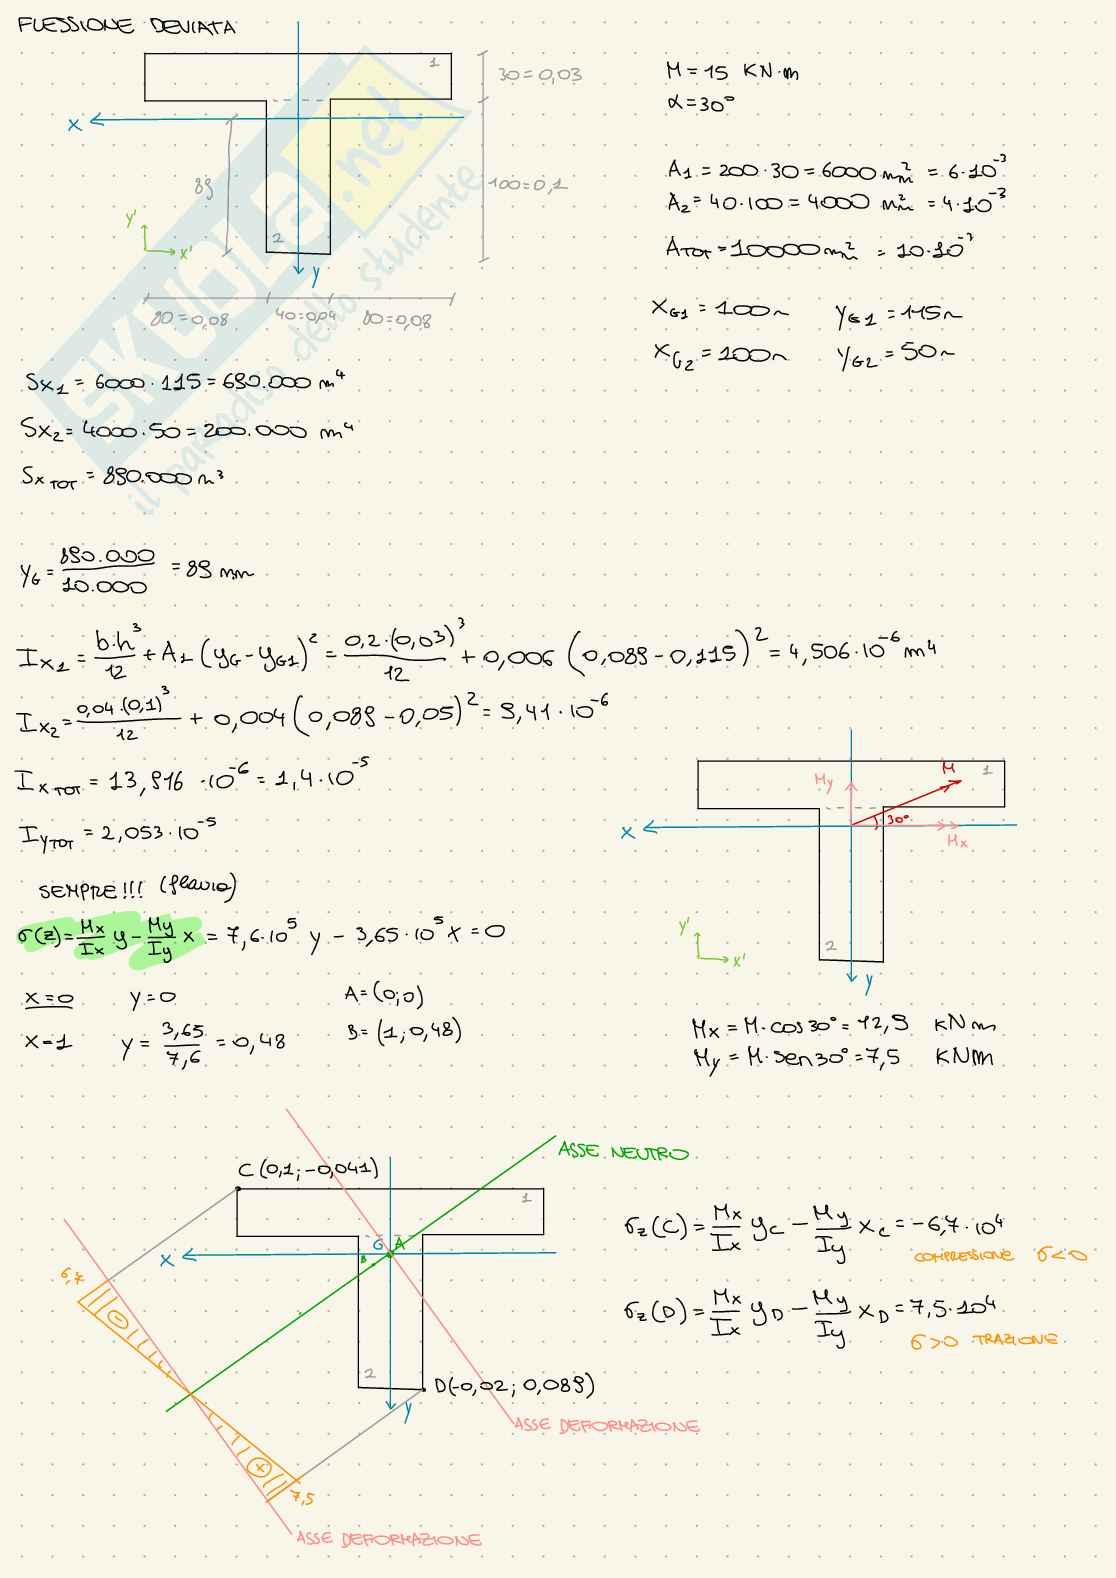 FLESSIONE DEVIATA
1
30=0,03
x
89
100=0,1
y'
x'
2
y
80=0,08 40=0,04 80=0,08
M=15 KN·m
α=30°
A1=200·30=6000 mm² = 6·10⁻³
A2=40·100=4000 mm² = 4·10⁻³
ATOT=10000 mm² = 10·10⁻³
XG1=100m YG1=115m
XG2=100m YG2=50m
SX1=6000·115=690.000 m⁴
SX2=4000·50=200.000 m⁴
SX TOT=890.000 m³
YG=890.000/10.000=89 mm
IX1=b·h³/12+A1(yG-yG1)²=0,2·(0,03)³/12+0,006(0,089-0,115)²=4,506·10⁻⁶ m⁴
IX2=0,04·(0,1)³/12+0,004(0,089-0,05)²=9,41·10⁻⁶
IX TOT=13,916·10⁻⁶=1,4·10⁻⁵
IYTOT=2,053·10⁻⁵
SEMPRE!!! (flavio)
σ(z)=Mx/Ix y-My/Iy x=7,6·10⁵ y-3,65·10⁵ x=0
x=0 y=0 A=(0;0)
x=1 y=3,65/7,6=0,48 B=(1;0,48)
My
M
1
30°
x
Mx
y'
x'
2
y
Mx=M·cos30°=12,9 KNm
My=M·sen30°=7,5 KNm
ASSE NEUTRO
C(0,1;-0,041)
1
G A
x
B
6,7
-
2
D(-0,02;0,089)
y
ASSE DEFORMAZIONE
+
7,5
ASSE DEFORMAZIONE
σz(C)=Mx/Ix yC-My/Iy xC=-6,7·10⁴
COMPRESSIONE σ<0
σz(D)=Mx/Ix yD-My/Iy xD=7,5·10⁴
σ>0 TRAZIONE
SKUOLA.net
il paradiso dello studente